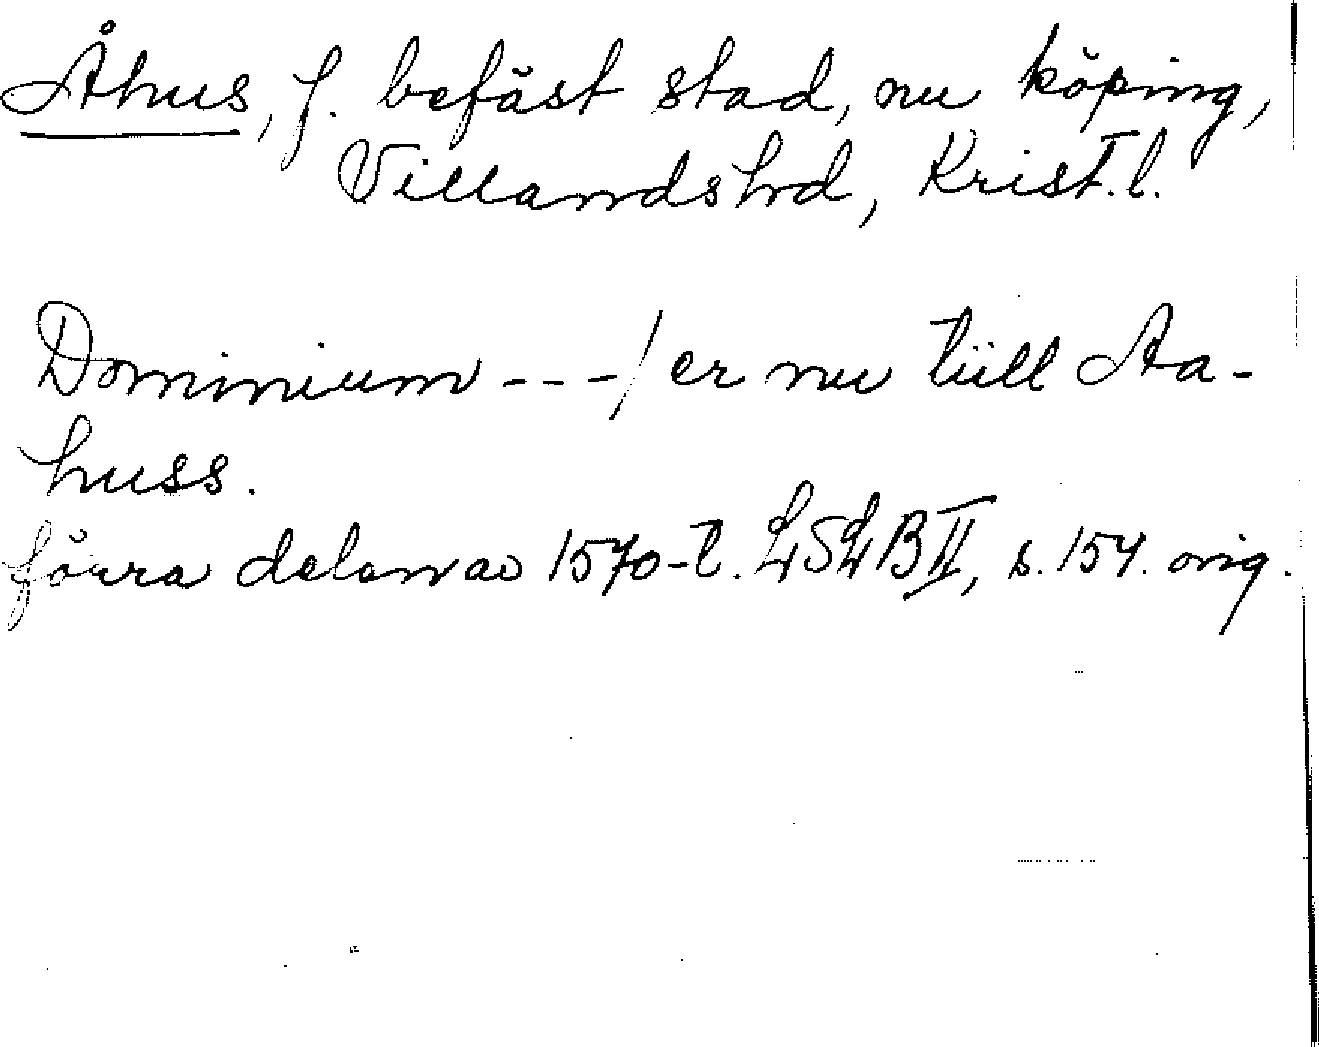 Åhus, f. befäst stad, nu köping,
Villandshrd, Krist. l.
Dominium - - -/ er nu tüll Aa-
huss.
förra delen av 1570-t. LSLB II, s. 154. orig.